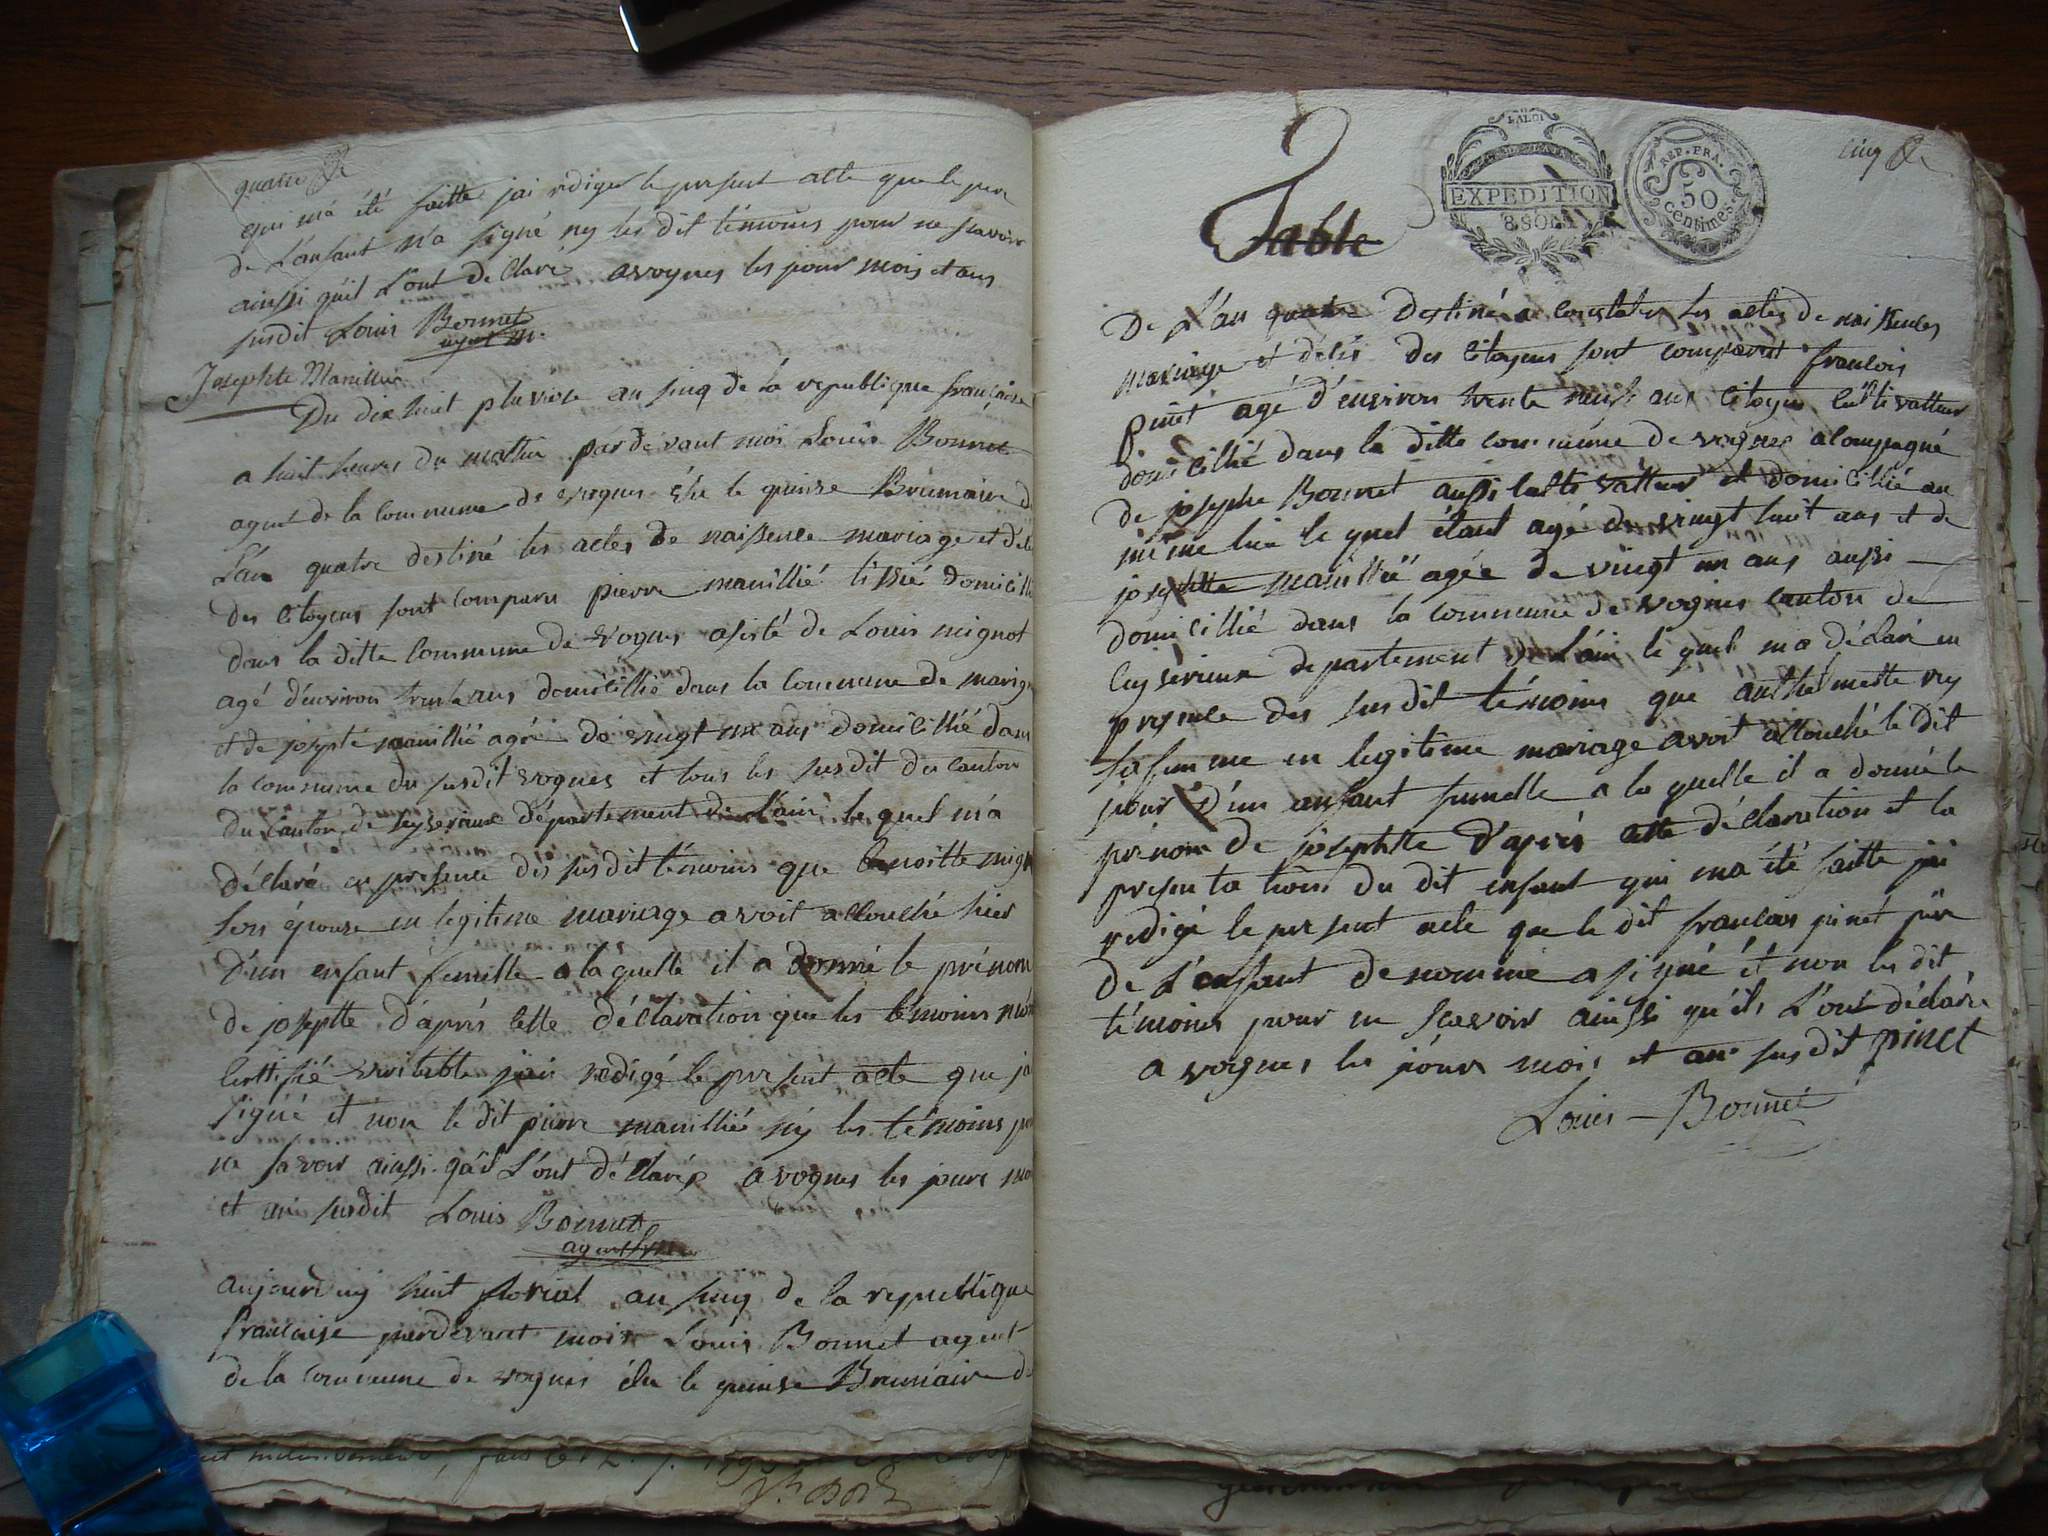 quatre
qui m'a été faitte jai rédigé le present acte que le pere
de L'anfant n'a signé ny les dit témoins pour ne scavoir
ainssi quil L'ont déClaré a vognes les jour mois et ans
susdit Louis Bonnet
agent
Josephte Manillier
Du dix huit pluviose an sinq de la republique française
a huit heures du mattin par dévant moi Louis Bonnet
agent de la commune de vognes élu le quinse Brumaire d
L'an quatre destiné les actes de naissence mariage et décè
des Citoyens sont comparu pierre manillié tissié domicillié
dans la ditte Commune de vognes asisté de Louis mignot
agé d'environ trente ans domicillié dans la Commune de marign
et de josepte manillié agée de vingt un ans domicillié dans
la commune du susdit vognes et tous les susdit du canton
du Canton de seyserieux département de L'ain le quel m'a
déClaré en presence des susdit témoins que benoitte mign
son épouse en legitime mariage avoit allouché hier
D'un enfant femelle a la quelle il a donné le prénom
de josepte d'après cette déClaration que les témoins m'on
Certifié véritable jai rédigé le present acte que jai
signé et non le dit pierre manillié ny les témoins pour
ne savoir ainssi quil L'ont déClaré a vognes les jours moi
et an susdit Louis Bonnet
agent
aujourduy huit florial an sinq de la republique
francaise pardevant moi Louis Bonnet agent
de la commune de vognes élu le quinse Brumaire d
cinq
LA LOI
EXPEDITION
REP. FRA.
50
Centimes
Table
De L'an quatre destiné a constater les actes de naissences
mariage et décés des Citoyens sont comparut francois
pinet agé d'environ trente neuf ans Citoyen Cultivatteur
domicillié dans la ditte commune de vognes acompagné
de josephe Bonnet aussi Cultivatteur et domicillié au
même lieu le quel étant agé de vingt huit ans et de
josephtte manillié agée de vingt un ans aussi
domicillié dans la commune de vognes canton de
Ceyserieux departement de L'ain le quel m'a déClaré en
presence des susdit témoins que anthelmette rey
sa femme en legitime mariage avoit allouché le dit
jour d'un anfant femelle a la quelle il a donné le
prénom de josephtte d'après cette déClaration et la
presentation du dit enfant qui m'a été faitte jai
redigé le present acte que le dit francois pinet père
de L'enfant denommé a signé et non les dit
témoins pour ne scavoir ainssi qu'ils L'ont déclaré
a vognes les jours mois et an susdit pinet
Louis Bonnet